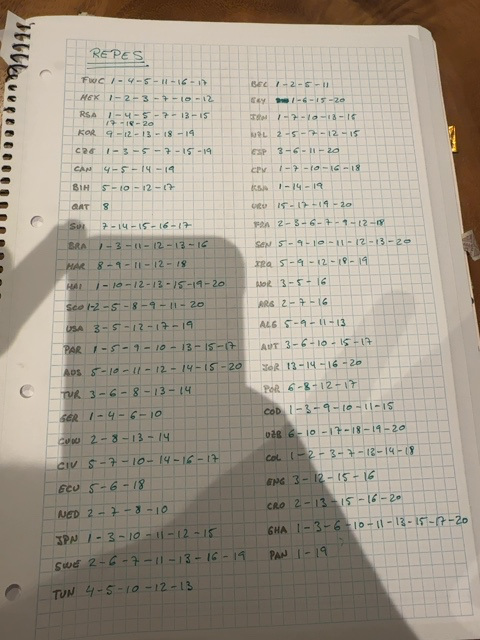 REPES
FWC 1-4-5-11-16-17
MEX 1-2-3-7-10-12
RSA 1-4-5-7-13-15
17-18-20
KOR 9-12-13-18-19
CZE 1-3-5-7-15-19
CAN 4-5-14-19
BIH 5-10-12-17
QAT 8
SUI 7-14-15-16-17
BRA 1-3-11-12-13-16
MAR 8-9-11-12-18
HAI 1-10-12-13-15-19-20
SCO 1-2-5-8-9-11-20
USA 3-5-13-17-19
PAR 1-5-9-10-13-15-17
AUS 5-10-11-12-14-15-20
TUR 3-6-8-13-14
GER 1-4-6-10
CUW 2-8-13-14
CIV 5-7-10-14-16-17
ECU 5-6-18
NED 2-7-8-10
JPN 1-3-10-11-12-15
SWE 2-6-7-11-13-16-19
TUN 4-5-10-12-13
BEL 1-2-5-11
EGY 1-6-15-20
IRN 1-7-10-13-15
NZL 2-5-7-12-15
ESP 3-6-11-20
CPV 1-7-10-16-18
KSA 1-14-19
URU 15-17-19-20
FRA 2-3-6-7-9-12-18
SEN 5-9-10-11-12-13-20
IRQ 5-9-12-18-19
NOR 3-5-16
ARG 2-7-16
ALG 5-9-11-13
AUT 3-6-10-15-17
JOR 13-14-16-20
POR 6-8-12-17
COD 1-3-9-10-11-15
UZB 6-10-17-18-19-20
COL 1-2-3-7-13-14-18
ENG 3-12-15-16
CRO 2-13-15-16-20
GHA 1-3-6-10-11-13-15-17-20
PAN 1-19